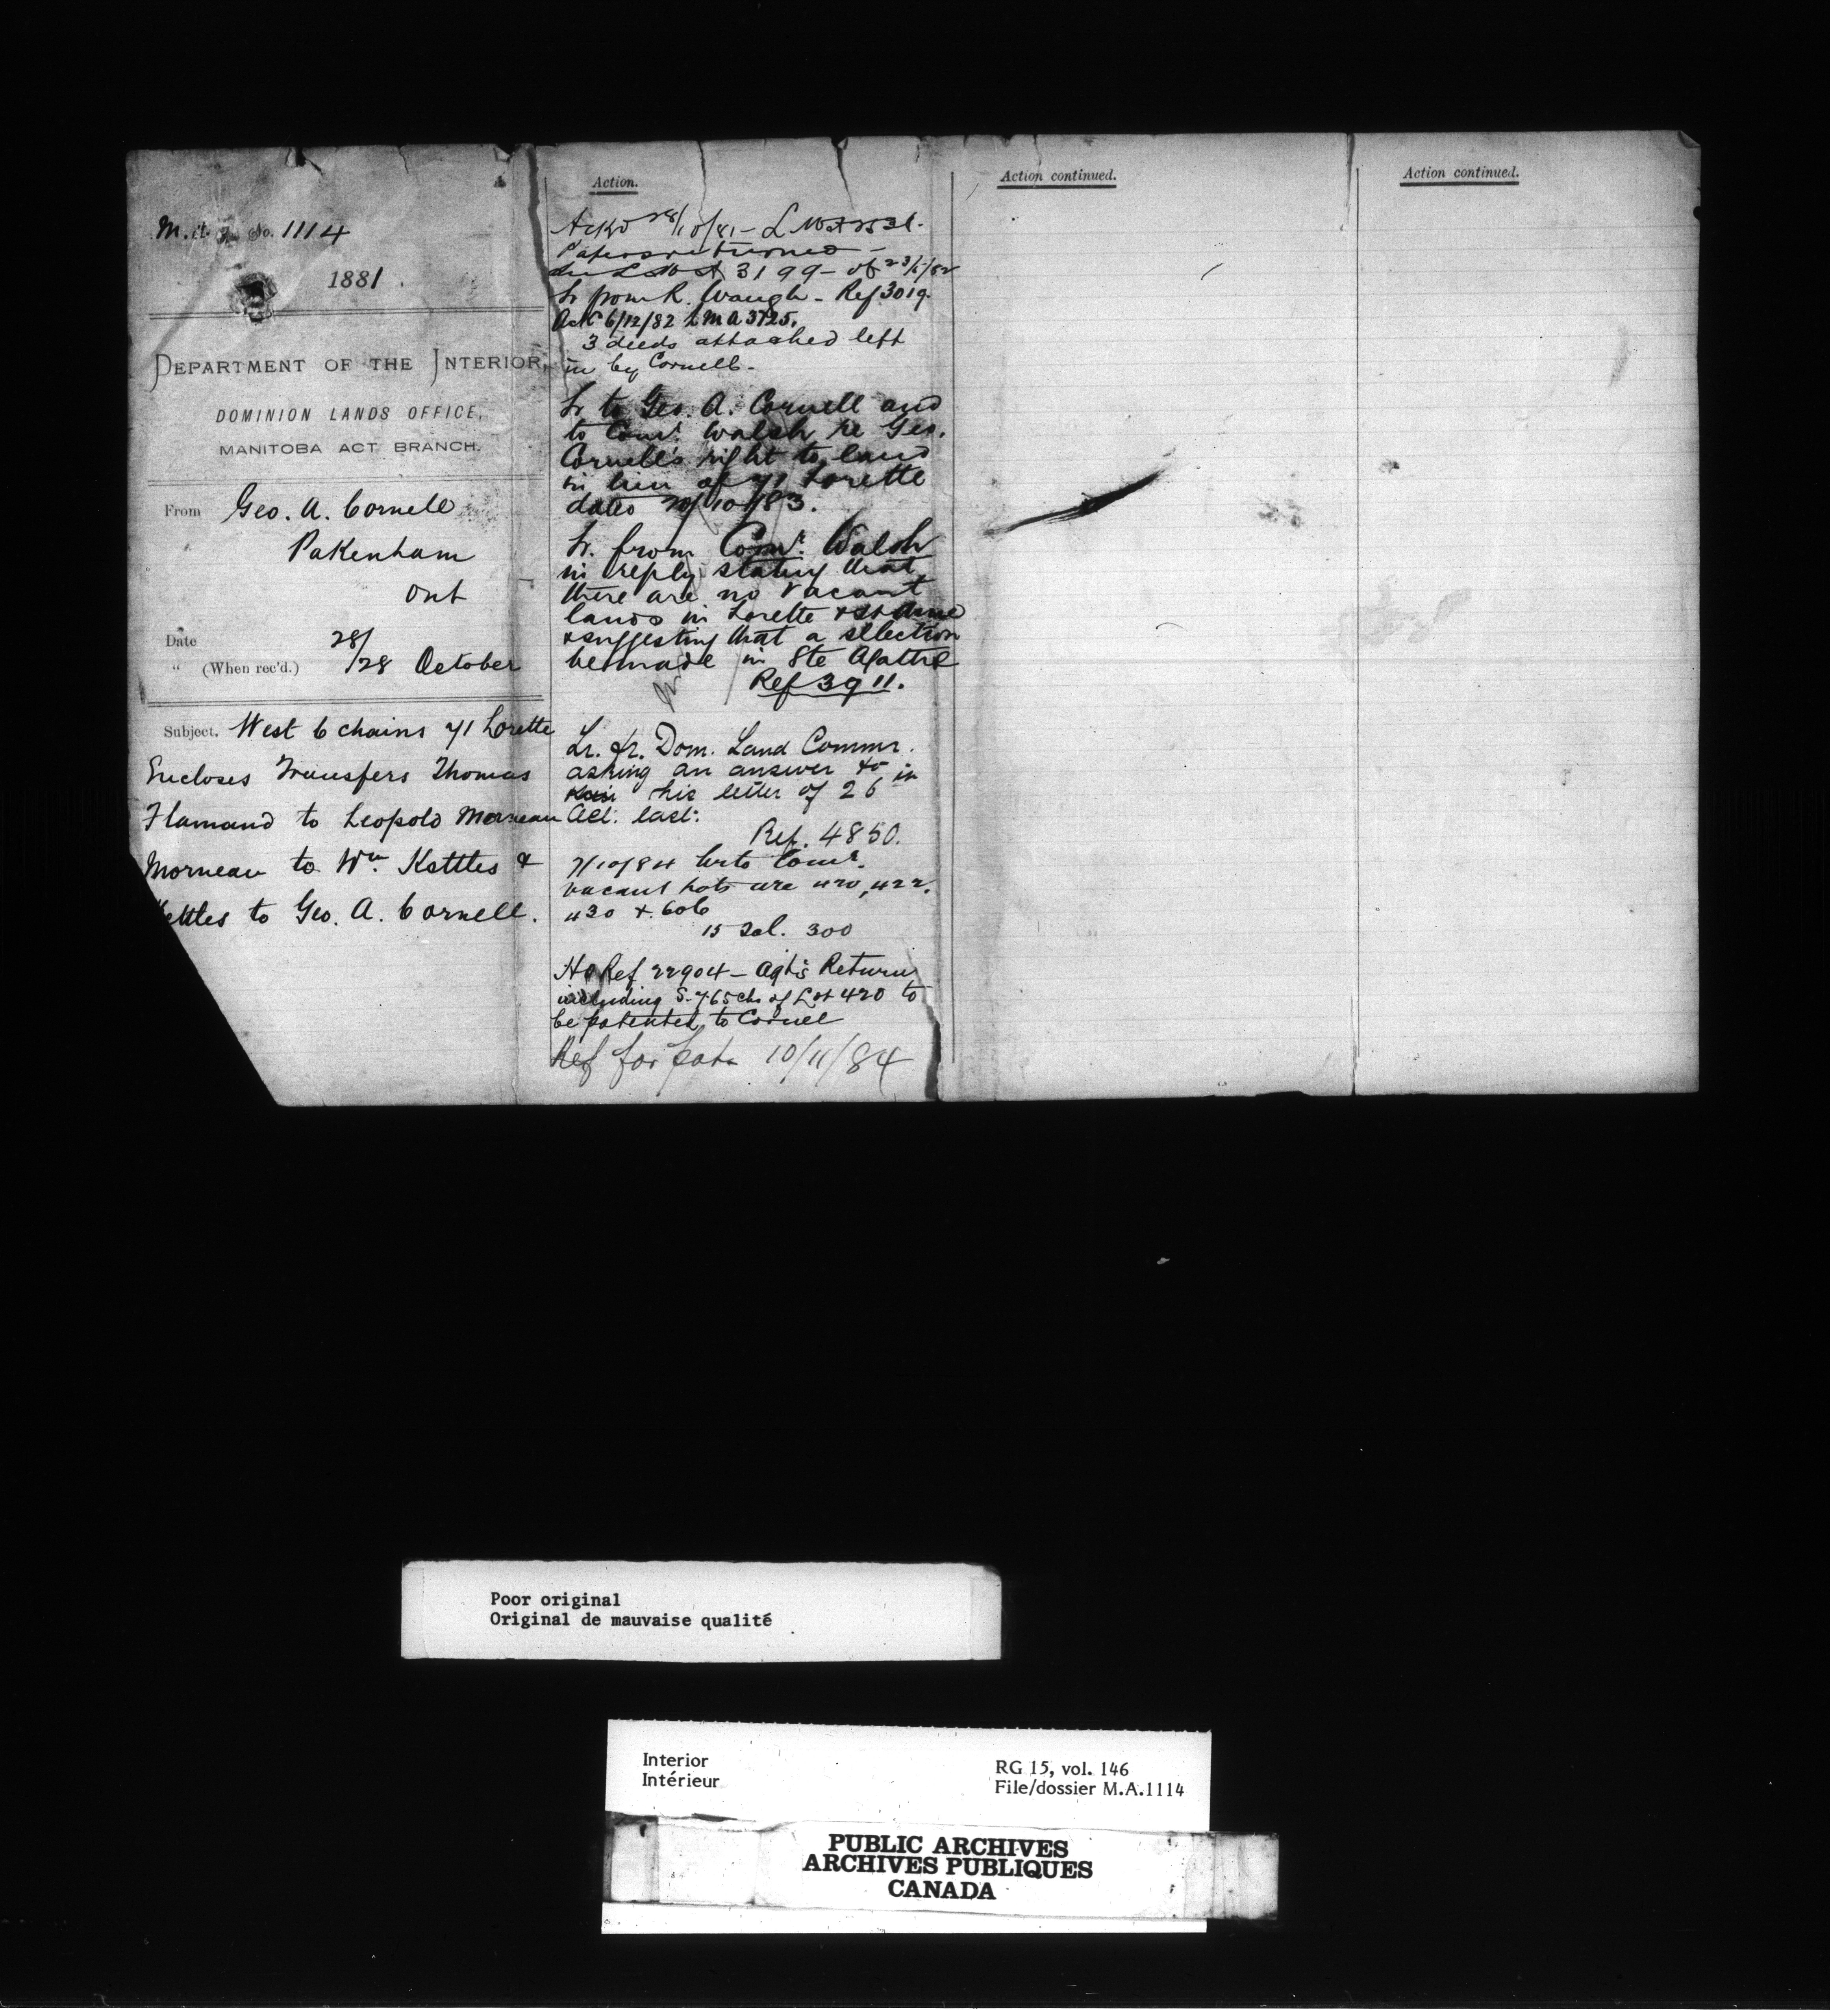 M.A. No. 1114
1881.
DEPARTMENT OF THE INTERIOR,
DOMINION LANDS OFFICE,
MANITOBA ACT BRANCH.
From Geo. A. Cornell
Pakenham
Ont
Date 28/
" (When rec'd.) /28 October
Subject. West 6 chains 71 Lorette
Encloses Transfers Thomas
Flamand to Leopold Morneau
Morneau to Wm. Kettles &
Kettles to Geo. A. Cornell.
Action.
Ackd 28/10/81 - L M A
Papers returned -
3199 - of
Lr from R. Waugh - Ref 3019.
Ack 6/12/82 L M A 3725.
3 deeds attached left
in by Cornell -
Lr to Geo. A. Cornell and
to Comr. Walsh re Geo.
Cornell's right to land
in lieu of 71 Lorette
dated 20/10/83.
Lr. from Comr. Walsh
in reply stating that
there are no vacant
lands in Lorette & Ste Anne
& suggesting that a selection
be made in Ste Agathe
Ref 3911.
Lr. fr. Dom. Land Commr.
asking an answer to
his letter of 26
last.
Ref. 4850.
7/10/84 Lr to Comr.
vacant lots are 420, 422,
430 & 606
15 Sol. 300
HO Ref 22904 - Agt's Return
including S. 7.65 chs of Lot 420 to
be patented to Cornel
Ref for pat. 10/11/84
Action continued.
Action continued.
Poor original
Original de mauvaise qualité
Interior
Intérieur
RG 15, vol. 146
File/dossier M.A.1114
PUBLIC ARCHIVES
ARCHIVES PUBLIQUES
CANADA